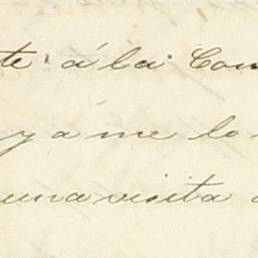 te á la Com
y á me lo
una visita